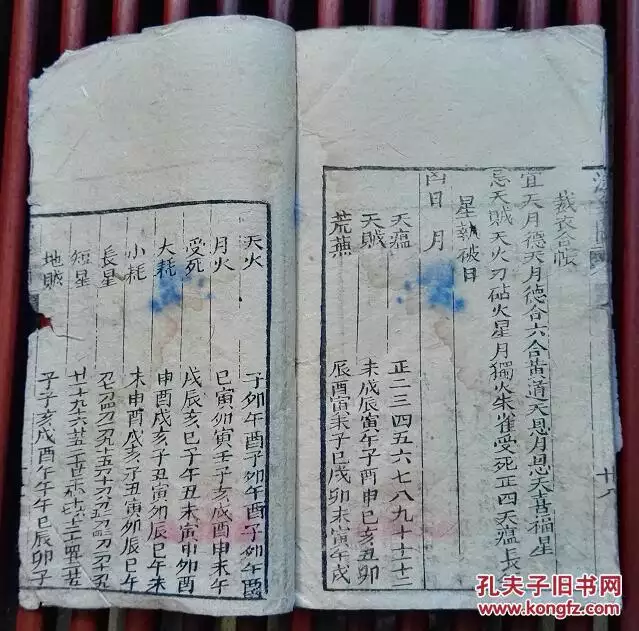 裁衣合帐
宜天月德天月德合六合黄道天恩月恩天喜福星
忌天賊天火刃砧火星月獨火朱雀受死正四天瘟長
星執破日
凶日 月
天瘟 正二三四五六七八九十十一十二
天賊 未戌辰寅午子酉申巳亥丑卯
荒蕪 辰酉寅未子巳戌卯未寅午戌
天火 子卯午酉子卯午酉子卯午酉
月火 巳寅卯寅壬子亥戌酉申未午
受死 戌辰亥巳子午丑未寅申卯酉
大耗 申酉戌亥子丑寅卯辰巳午未
小耗 未申酉戌亥子丑寅卯辰巳午
長星
短星
地賊 子子亥戌酉午午午巳辰卯子
孔夫子旧书网
www.kongfz.com